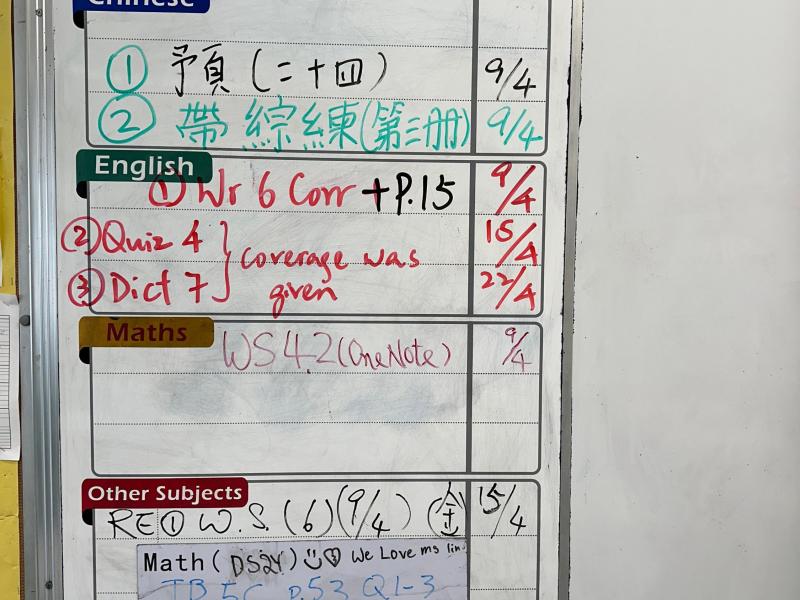 Chinese
① 預(二十四) 9/4
② 帶綜練(第三冊) 9/4
English
① Wr 6 Corr + P.15 9/4
② Quiz 4 } coverage was 15/4
③ Dict 7 given 22/4
Maths
WS4.2 (OneNote) 9/4
Other Subjects
RE① W.S. (6) (9/4) (金 15/4
Math (DS2Y) We Love ms lin
TB 5C p.53 Q1-3